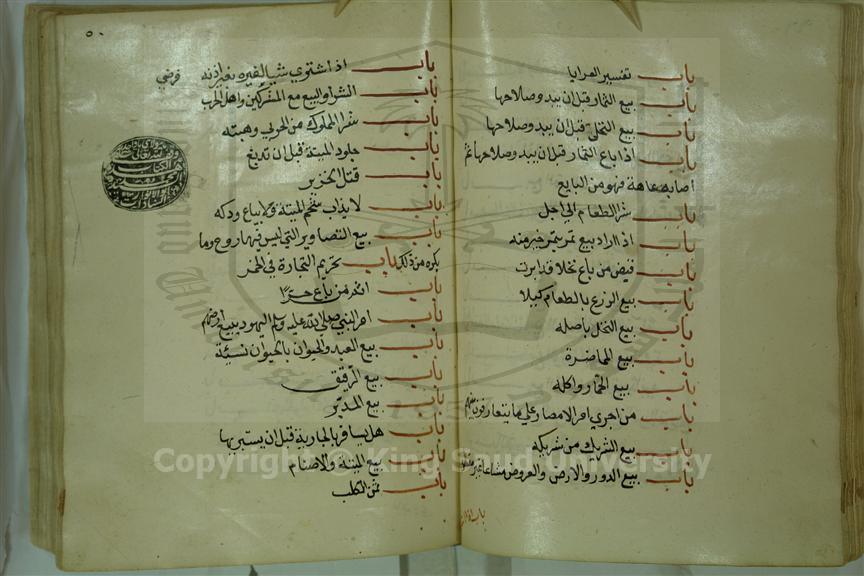 باب تفسير العرايا
باب بيع الثمار قبل ان يبدو صلاحها
باب بيع النخل قبل ان يبدو صلاحها
باب اذا باع الثمار قبل ان يبدو صلاحها ثم
اصابه عاهة فهو من البايع
باب شرا الطعام الى اجل
باب اذا اراد بيع تمر بتمر خير منه
باب قبض من باع نخلا قد ابرت
باب بيع الزرع بالطعام كيلا
باب بيع النخل باصله
باب بيع المخاضرة
باب بيع الجمار واكله
باب من اجرى امر الامصار على ما يتعارفون بينهم
باب بيع الشريك من شريكه
باب بيع الدور والارض والعروض مشاعا غير
باب اذا
٥٠
باب اذا اشترى شيا لغيره بغير اذنه فرضي
باب الشرا والبيع مع المشركين واهل الحرب
باب شرا المملوك من الحربي وهبته
باب جلود الميتة قبل ان تدبغ
باب قتل الخنزير
باب لا يذاب شحم الميتة ولا يباع ودكه
باب بيع التصاوير التي ليس فيها روح وما
يكره من ذلك باب تحريم التجارة في الخمر
باب اثم من باع حرا
باب امر النبي صلى الله عليه وسلم اليهود ببيع ارضهم
باب بيع العبد والحيوان بالحيوان نسيئة
باب بيع الرقيق
باب بيع المدبر
باب هل يسافر بالجارية قبل ان يستبريها
باب بيع الميتة والاصنام
باب ثمن الكلب
Copyright © King Saud University